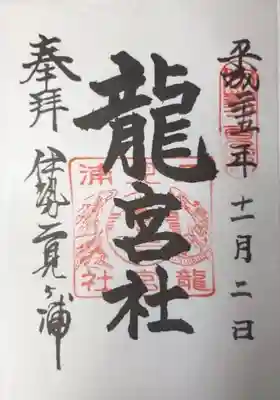 平成二十五年 十一月二日
龍宮社
奉拝 伊勢二見ヶ浦